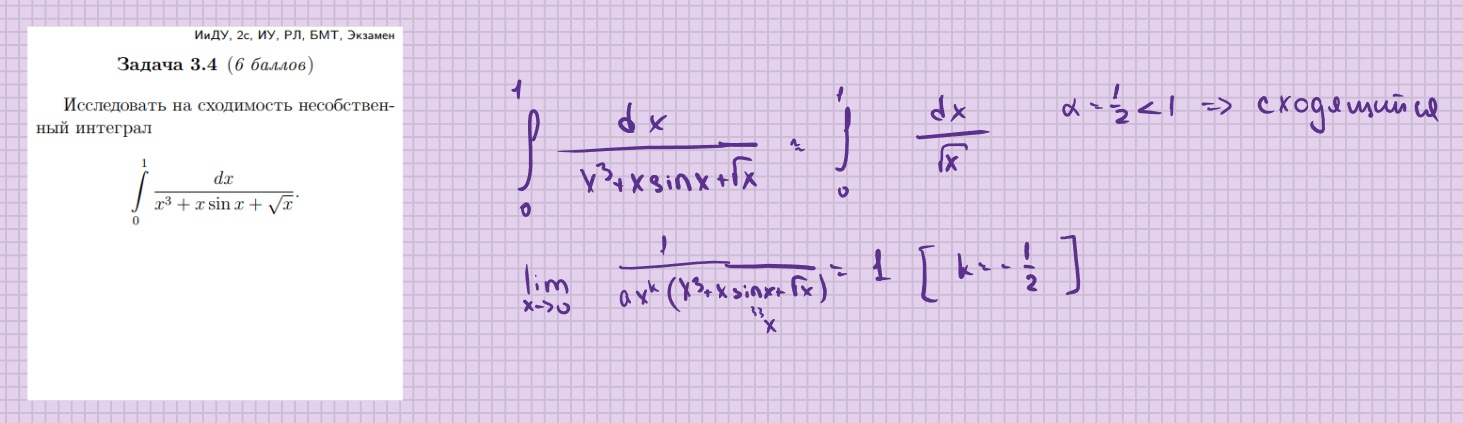 ИиДУ, 2с, ИУ, РЛ, БМТ, Экзамен
Задача 3.4 (6 баллов)
Исследовать на сходимость несобствен-
ный интеграл
∫₀¹ dx / (x³ + x sin x + √x).
∫₀¹ dx / (x³ + x sin x + √x) ≈ ∫₀¹ dx / √x α = 1/2 < 1 => сходящийся
lim x→0 1 / (ax^k (x³ + x sin x + √x)) = 1 [k = -1/2]
x